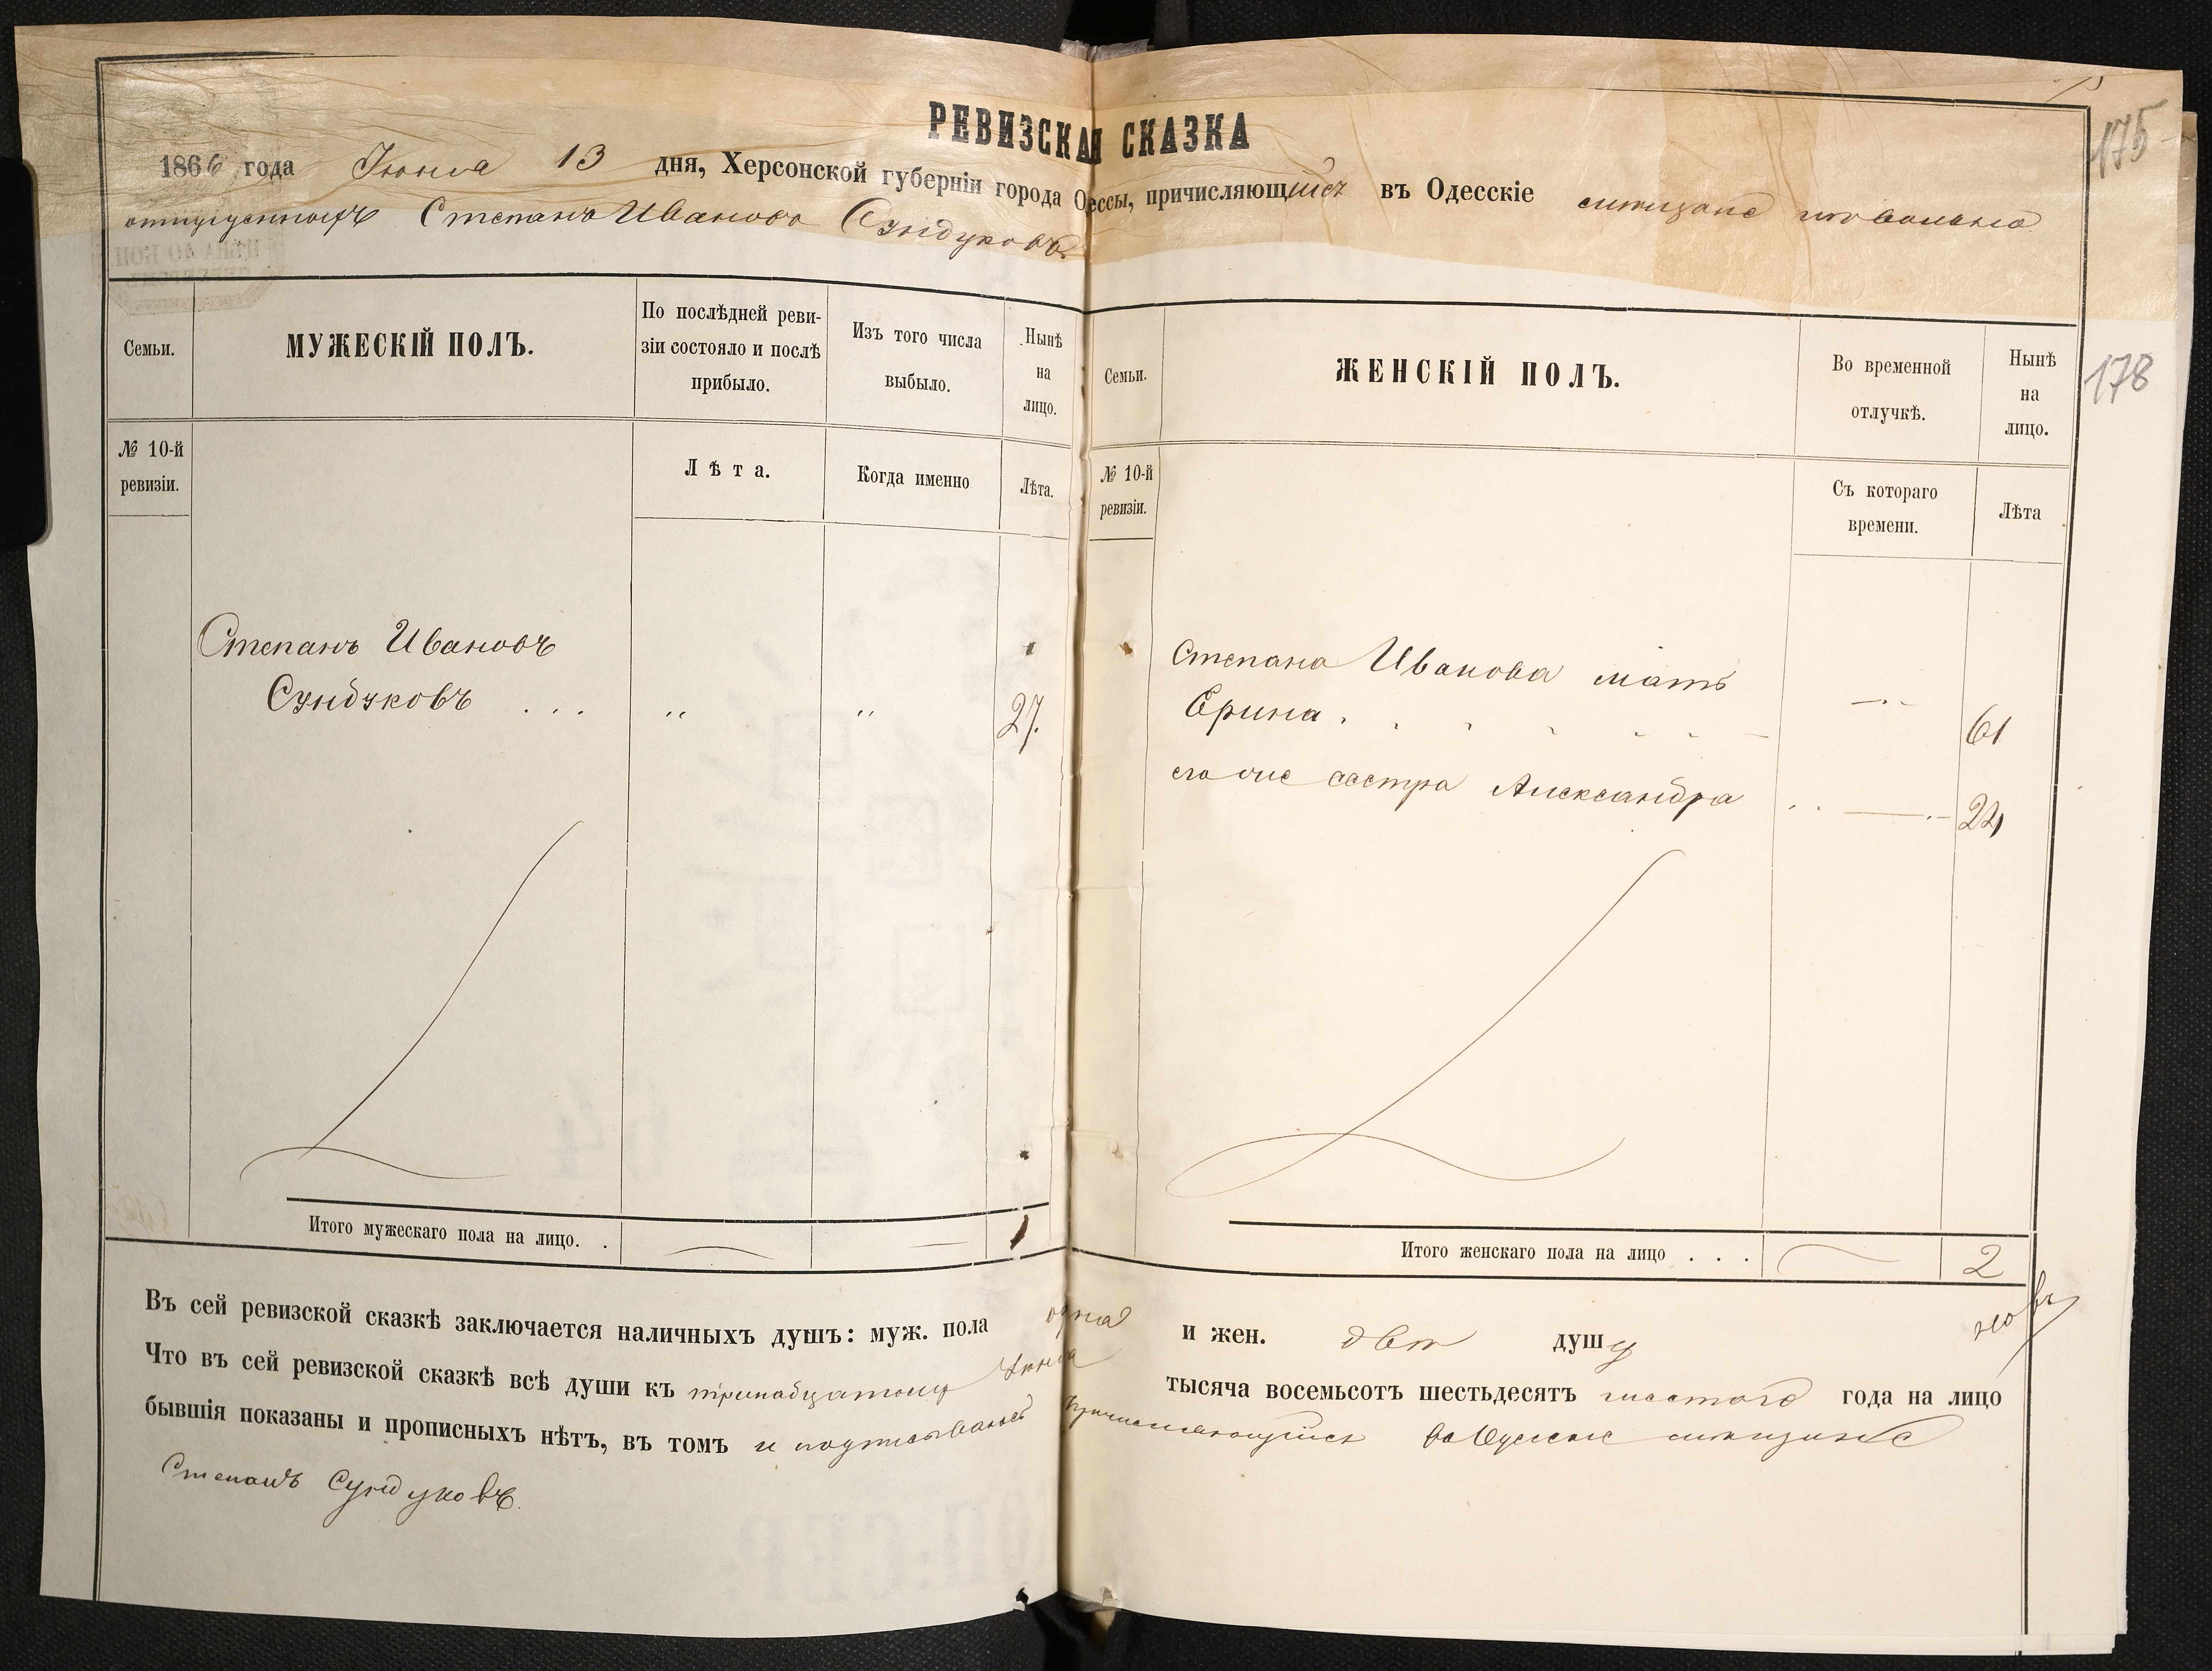 РЕВИЗСКАЯ СКАЗКА
1866 года Июня 13 дня, Херсонской губерніи города Одессы, причисляющійся въ Одесскіе мѣщане
отпущеннаго Степана Иванова Сундукова
175
178
Семьи.
МУЖЕСКІЙ ПОЛЪ.
По послѣдней реви-
зіи состояло и послѣ
прибыло.
Изъ того числа
выбыло.
Нынѣ
на
лицо.
№ 10-й
ревизіи.
Лѣта.
Когда именно
Лѣта.
Степанъ Ивановъ
Сундуковъ . . . „ „ 27.
Итого мужескаго пола на лицо. . 1
Семьи.
ЖЕНСКІЙ ПОЛЪ.
Во временной
отлучкѣ.
Нынѣ
на
лицо.
№ 10-й
ревизіи.
Съ котораго
времени.
Лѣта
Степана Иванова мать
Ерина . . . . . . 61
его же сестра Александра . . 22
Итого женскаго пола на лицо . . . 2
Въ сей ревизской сказкѣ заключается наличныхъ душъ: муж. пола одна и жен. двѣ душу
Что въ сей ревизской сказкѣ всѣ души къ тринадцатому Июня тысяча восемьсотъ шестьдесятъ шестаго года на лицо
бывшія показаны и прописныхъ нѣтъ, въ томъ и подписываюсь причисляющійся въ Одесскіе мѣщане
Степанъ Сундуковъ.